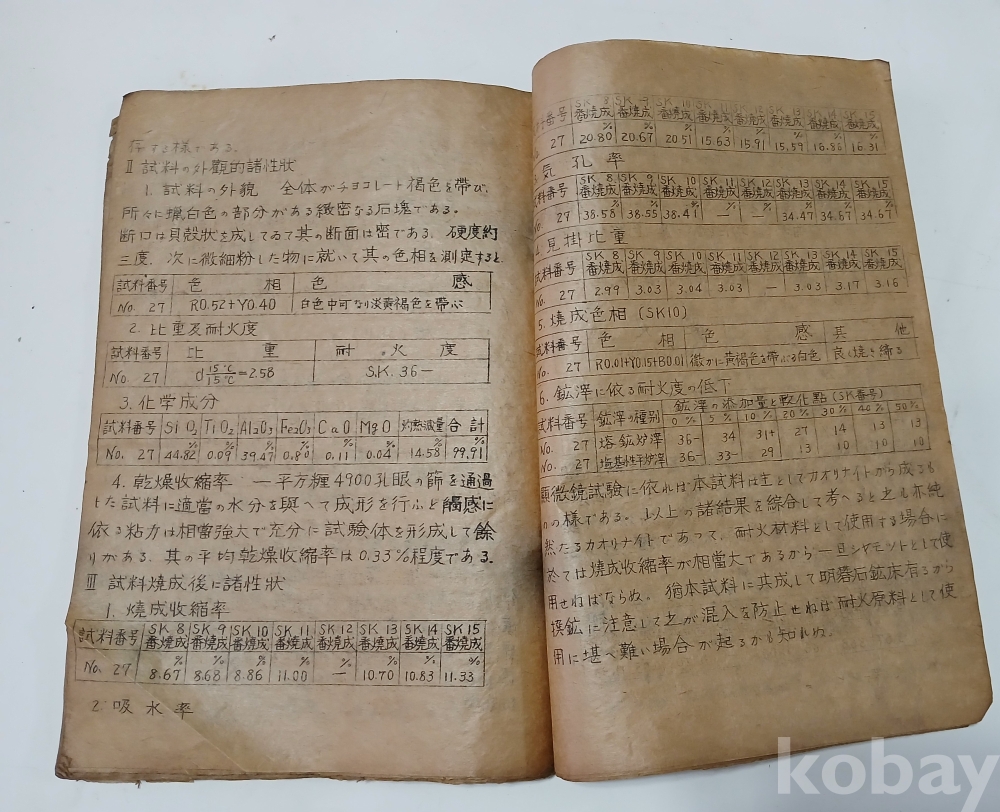 存する様である。
Ⅱ 試料の外觀的諸性狀
1. 試料の外貌 全体がチヨコレート褐色を帶び、
所々に蠟白色の部分がある緻密なる石塊である。
断口は貝殼狀を成してゐて其の断面は密である。硬度約
三度。次に微細粉した物に就いて其の色相を測定すると
試料番号 色相 色感
No. 27 R0.52+Y0.40 白色中可なり淡黄褐色を帶ぶ
2. 比重及耐火度
試料番号 比重 耐火度
No. 27 d15℃/15℃=2.58 S.K. 36−
3. 化学成分
試料番号 SiO₂ TiO₂ Al₂O₃ Fe₂O₃ CaO MgO 灼熱減量 合計
% % % % % % % %
No. 27 44.82 0.09 39.47 0.80 0.11 0.04 14.58 99.91
4. 乾燥收縮率 一平方糎4900孔眼の篩を通過
した試料に適當の水分を與へて成形を行ふと觸感に
依る粘力は相當強大で充分に試驗体を形成して餘
りがある。其の平均乾燥收縮率は0.33%程度である。
Ⅲ 試料燒成後に諸性狀
1. 燒成收縮率
試料番号 SK 8番燒成 SK 9番燒成 SK 10番燒成 SK 11番燒成 SK 12番燒成 SK 13番燒成 SK 14番燒成 SK 15番燒成
% % % % % % % %
No. 27 8.67 8.68 8.86 11.00 — 10.70 10.83 11.33
2. 吸水率
番号 SK 8番燒成 SK 9番燒成 SK 10番燒成 SK 11番燒成 SK 12番燒成 SK 13番燒成 SK 14番燒成 SK 15番燒成
27 20.80 20.67 20.51 15.63 15.91 15.59 16.86 16.31
3. 気孔率
試料番号 SK 8番燒成 SK 9番燒成 SK 10番燒成 SK 11番燒成 SK 12番燒成 SK 13番燒成 SK 14番燒成 SK 15番燒成
No. 27 38.58 38.55 38.41 — — 34.47 34.67 34.67
4. 見掛比重
試料番号 SK 8番燒成 SK 9番燒成 SK 10番燒成 SK 11番燒成 SK 12番燒成 SK 13番燒成 SK 14番燒成 SK 15番燒成
No. 27 2.99 3.03 3.04 3.03 — 3.03 3.17 3.16
5. 燒成色相 (SK10)
試料番号 色相 色感 其他
No. 27 R0.01+Y0.15+B0.01 微かに黄褐色を帶ぶる白色 良く燒き締る
6. 鉱滓に依る耐火度の低下
試料番号 鉱滓の種別 鉱滓の添加量と軟化點 (SK番号)
0% 5% 10% 20% 30% 40% 50%
No. 27 熔鉱炉滓 36− 34 31+ 27 14 13 13
No. 27 塩基性平炉滓 36− 33− 29 13 10 10 10
顯微鏡試驗に依れば本試料は主としてカオリナイトから成るも
のの様である。以上の諸結果を綜合して考へると之も亦純
然たるカオリナイトであつて、耐火材料として使用する場合に
於ては燒成收縮率が相當大であるから一旦シヤモツトとして使
用せねばならぬ。猶本試料に共成して明礬石鉱床有るから
撰鉱に注意して之が混入を防止せねば耐火原料として使
用に堪へ難い場合が起るかも知れぬ。
kobay